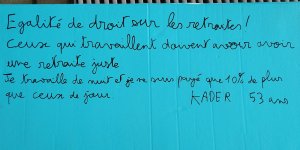 Egalité de droit sur les retraites !
Ceux qui travaillent doivent avoir avoir
une retraite juste
Je travaille de nuit et je ne suis payé que 10% de plus
que ceux de jour. KADER 53 ans